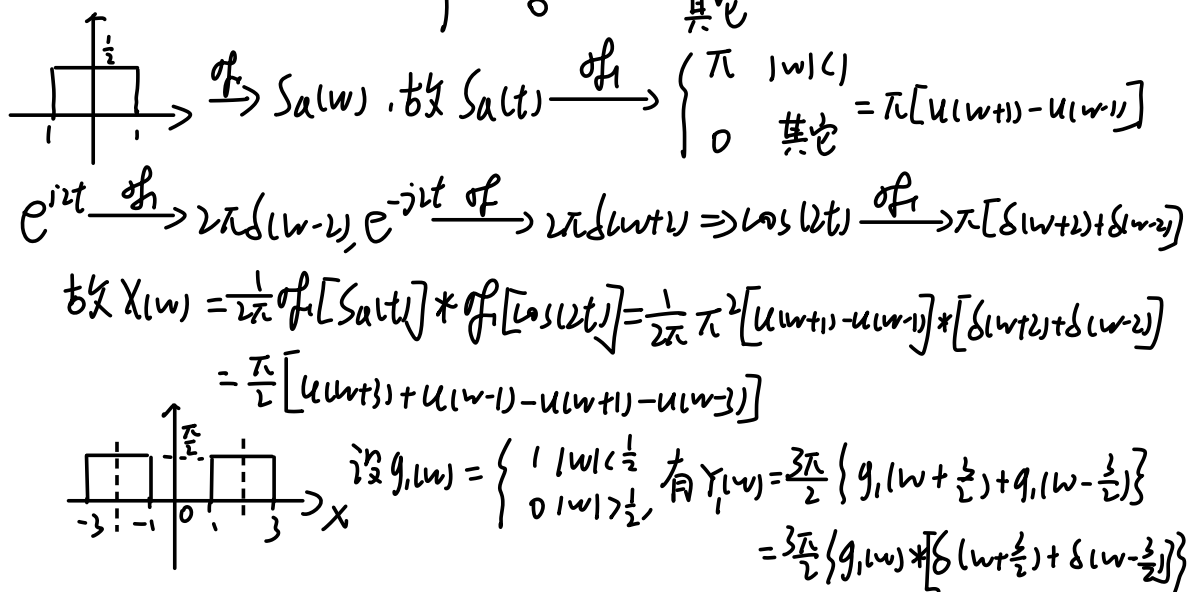 其它
1/2 𝓕→ Sa(w),故 Sa(t) 𝓕→ { π |w|<1 0 其它 = π[u(w+1)-u(w-1)]
1 1
e^{j2t} 𝓕→ 2πδ(w-2), e^{-j2t} 𝓕→ 2πδ(w+2) ⇒ cos(2t) 𝓕→ π[δ(w+2)+δ(w-2)]
故 X(w) = 1/2π 𝓕[Sa(t)] * 𝓕[cos(2t)] = 1/2π π²[u(w+1)-u(w-1)]*[δ(w+2)+δ(w-2)]
= π/2 [u(w+3)+u(w-1)-u(w+1)-u(w-3)]
π/2 设 g₁(w) = { 1 |w|<1/2 0 |w|>1/2, 有 Y₁(w) = 3π/2 {g₁(w+3/2)+g₁(w-3/2)}
-3 -1 0 1 3 X
= 3π/2 {g₁(w)*[δ(w+3/2)+δ(w-3/2)]}